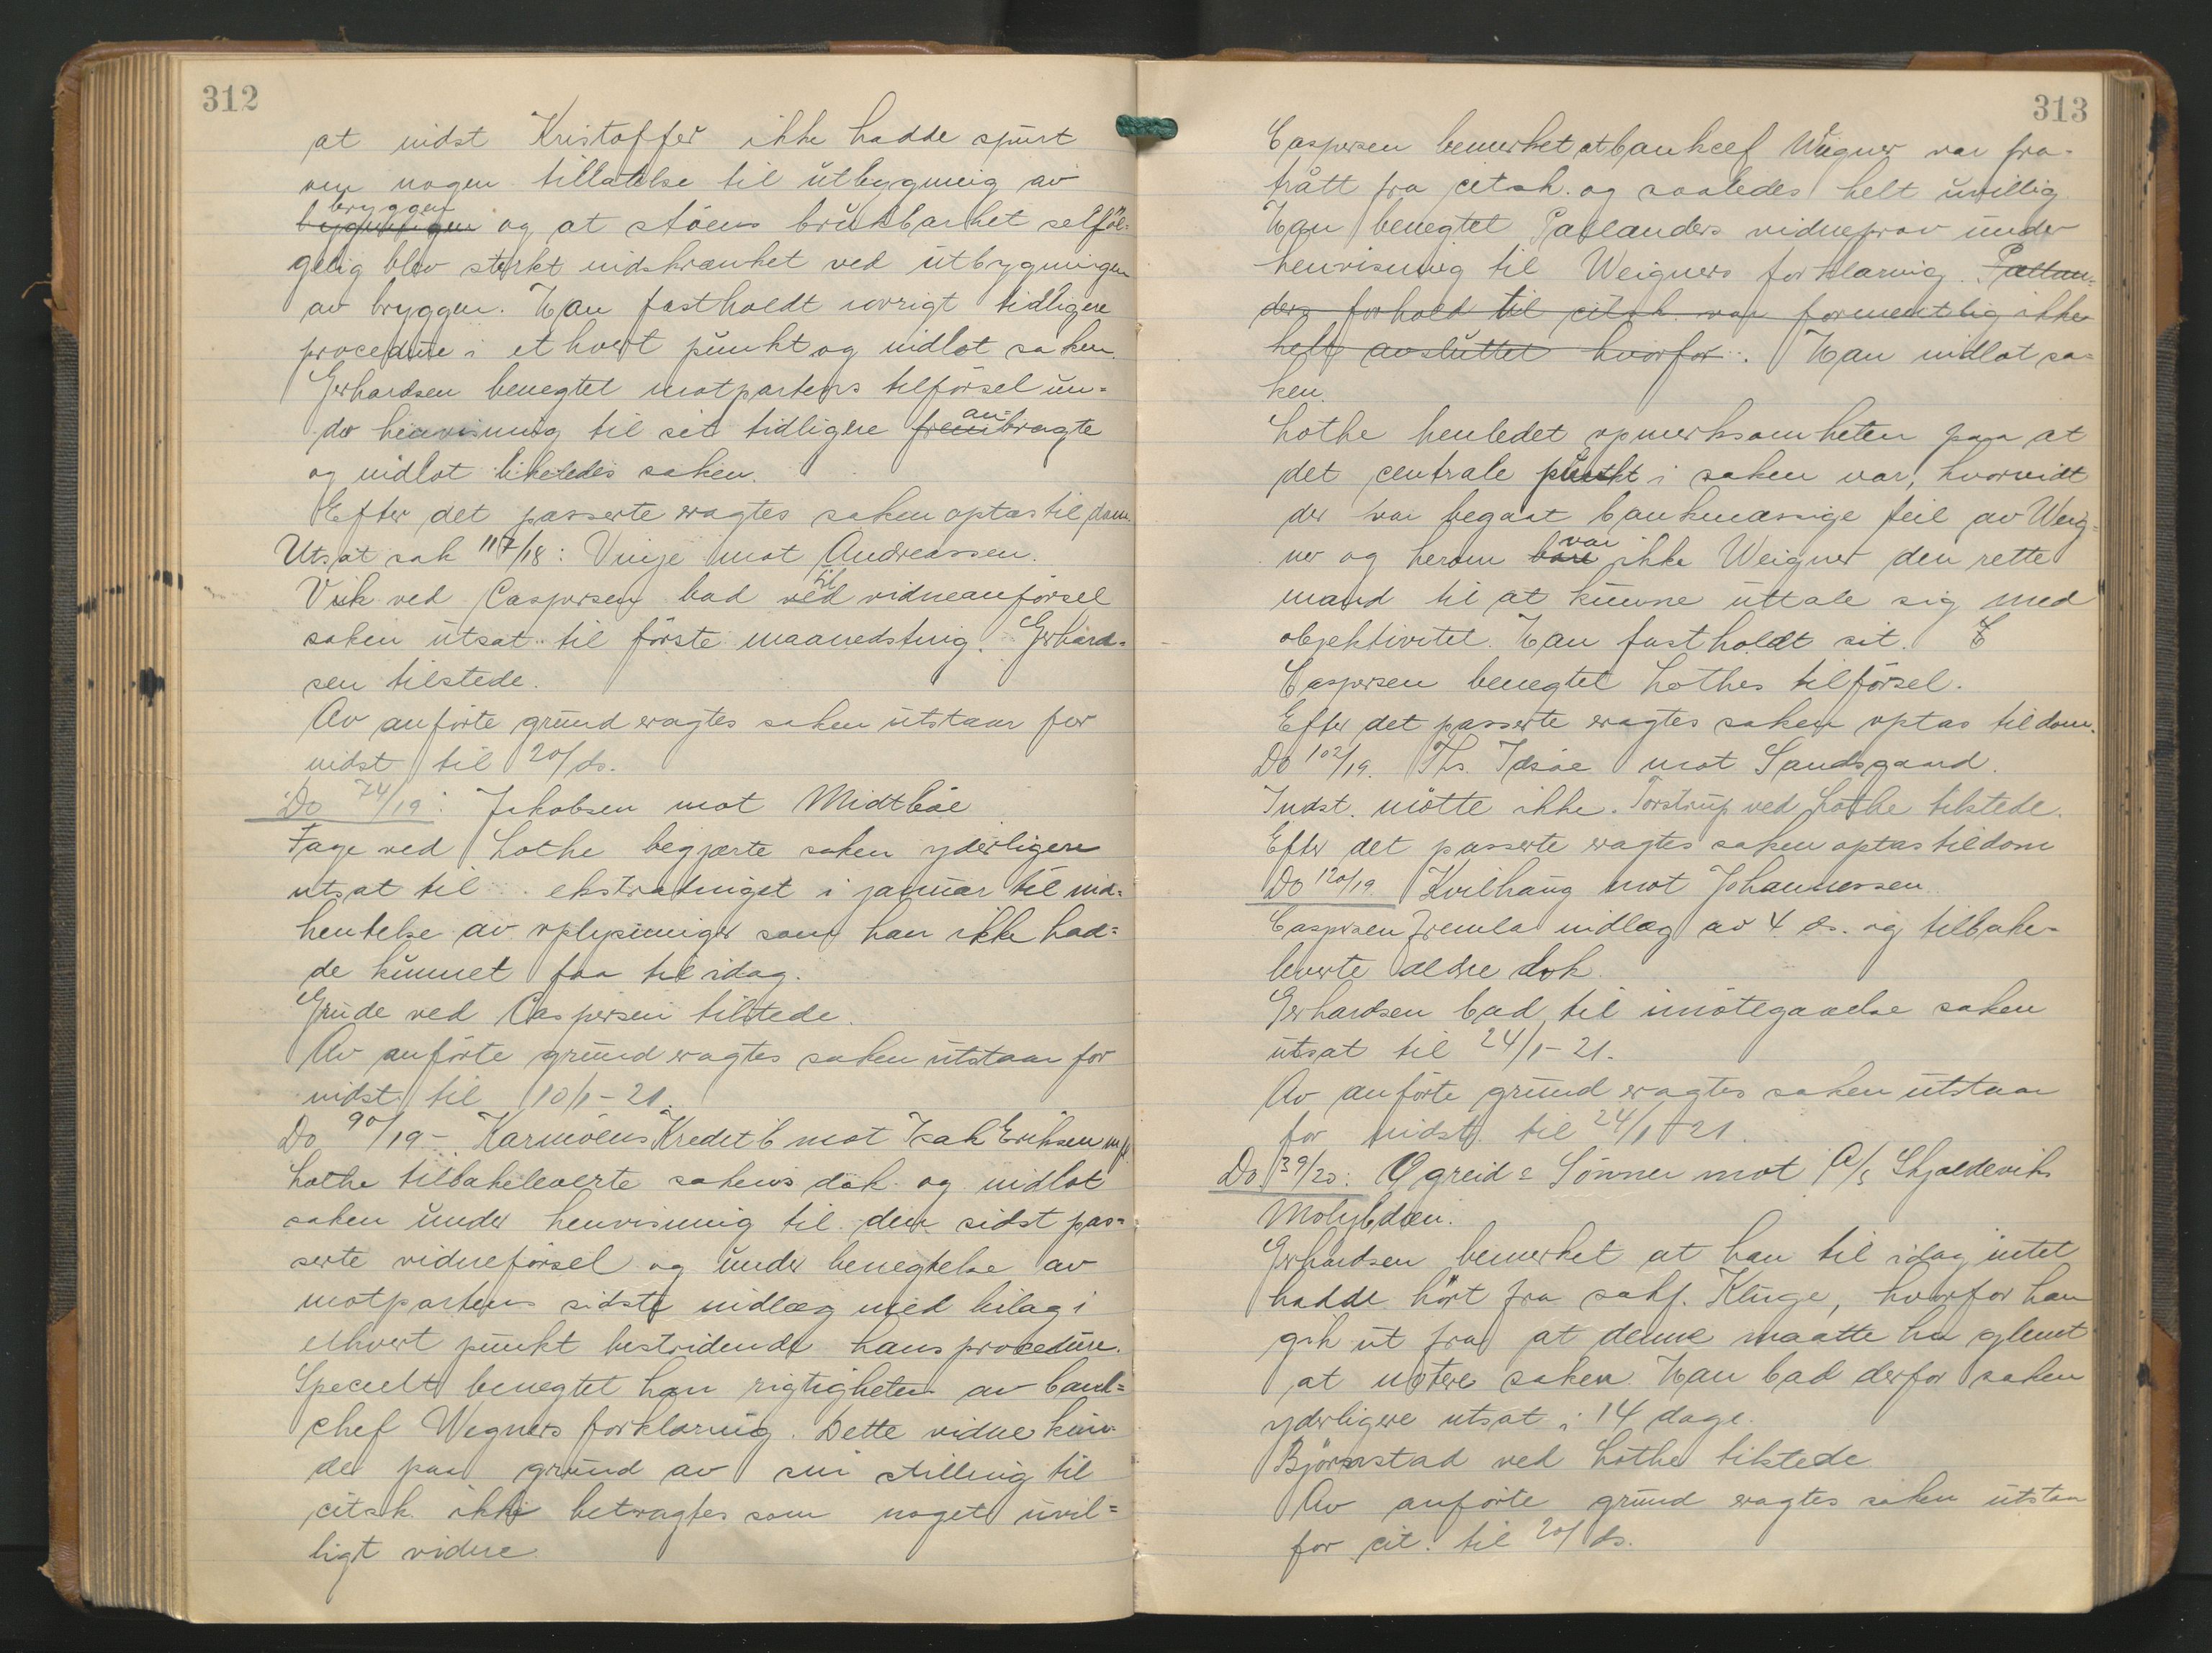 312
at indst Kristoffer ikke hadde spurt
om nogen tillatelse til utbygning av
bryggen
bygningen og at støens brukbarhet selføl-
gelig blev sterkt indskrænket ved utbygningen
av bryggen. Han fastholdt iøvrigt tidligere
procedure i ethvert punkt og indlot saken.
Gerhardsen benegtet motpartens tilførsel un-
der henvisning til sit tidligere frem an-bragte
og indlot likeledes saken.
Efter det passerte eragtes saken optas til dom.
Utsat sak 117/18: Vinje mot Andreassen.
Vik ved Caspersen bad ved til vidneanførsel
saken utsat til første maanedsting. Gerhard-
sen tilstede.
Av anførte grund eragtes saken utstaar for
indst til 20/ds.
Do 74/19: Jakobsen mot Midtbøe
Fage ved Lothe begjærte saken yderligere
utsat til ekstratinget i januar til ind-
hentelse av oplysninger som han ikke had-
de kunnet faa til idag.
Grude ved Caspersen tilstede.
Av anførte grund eragtes saken utstaar for
indst. til 10/1-21.
Do 90/19 - Karmøens Kredit B mot Isak Eriksen m/fl
Lothe tilbakeleverte sakens dok. og indlot
saken under henvisning til den sidst pas-
serte vidneførsel og under benegtelse av
motpartens sidste indlæg med bilag i
ethvert punkt bestridende hans procedure.
Specielt benegtet han rigtigheten av bank-
chef Wegners forklaring. Dette vidne kun-
de paa grund av sin stilling til
citsk. ikke betragtes som noget uvil-
ligt vidne.
313
Caspersen bemerket at bankchef Weigner var fra-
trått fra citsk. og saaledes helt uvillig
Han benegtet Pallanders vidneprov under
henvisning til Weigners forklaring. Pallan-
ders forhold til citsk. var formentlig ikke
helt avsluttet hvorfor. Han indlot sa-
ken.
Lothe henledet opmerksomheten paa at
det centrale punkt i saken var, hvorvidt
der var begaat bankmæssige feil av Weig-
ner og herom bare var ikke Weigner den rette
mand til at kunne uttale sig med
objektivitet. Han fastholdt sit. C
Caspersen benegtet Lothes tilførsel.
Efter det passerte eragtes saken optas til dom.
Do 102/19. Ths. Idsøe mot Sandsgaard.
Indst. møtte ikke. Torstrup ved Lothe tilstede.
Efter det passerte eragtes saken optas til dom
Do 120/19 Kvilhaug mot Johannessen.
Caspersen fremla indlæg av 4. ds. og tilbake-
leverte ældre dok.
Gerhardsen bad til imøtegaaelse saken
utsat til 24/1-21.
Av anførte grund eragtes saken utstaar
for indst. til 24/1-21.
Do 39/20: Ogreid & Sønner mot A/s Skjoldeviks
Molybdæn.
Gerhardsen bemerket at han til idag intet
hadde hørt fra sakf. Kluge, hvorfor han
gik ut fra at denne maatte ha glemt
at notere saken. Han bad derfor saken
yderligere utsat i 14 dage.
Bjørnstad ved Lothe tilstede
Av anførte grund eragtes saken utstaa
for cit. til 20/ds.